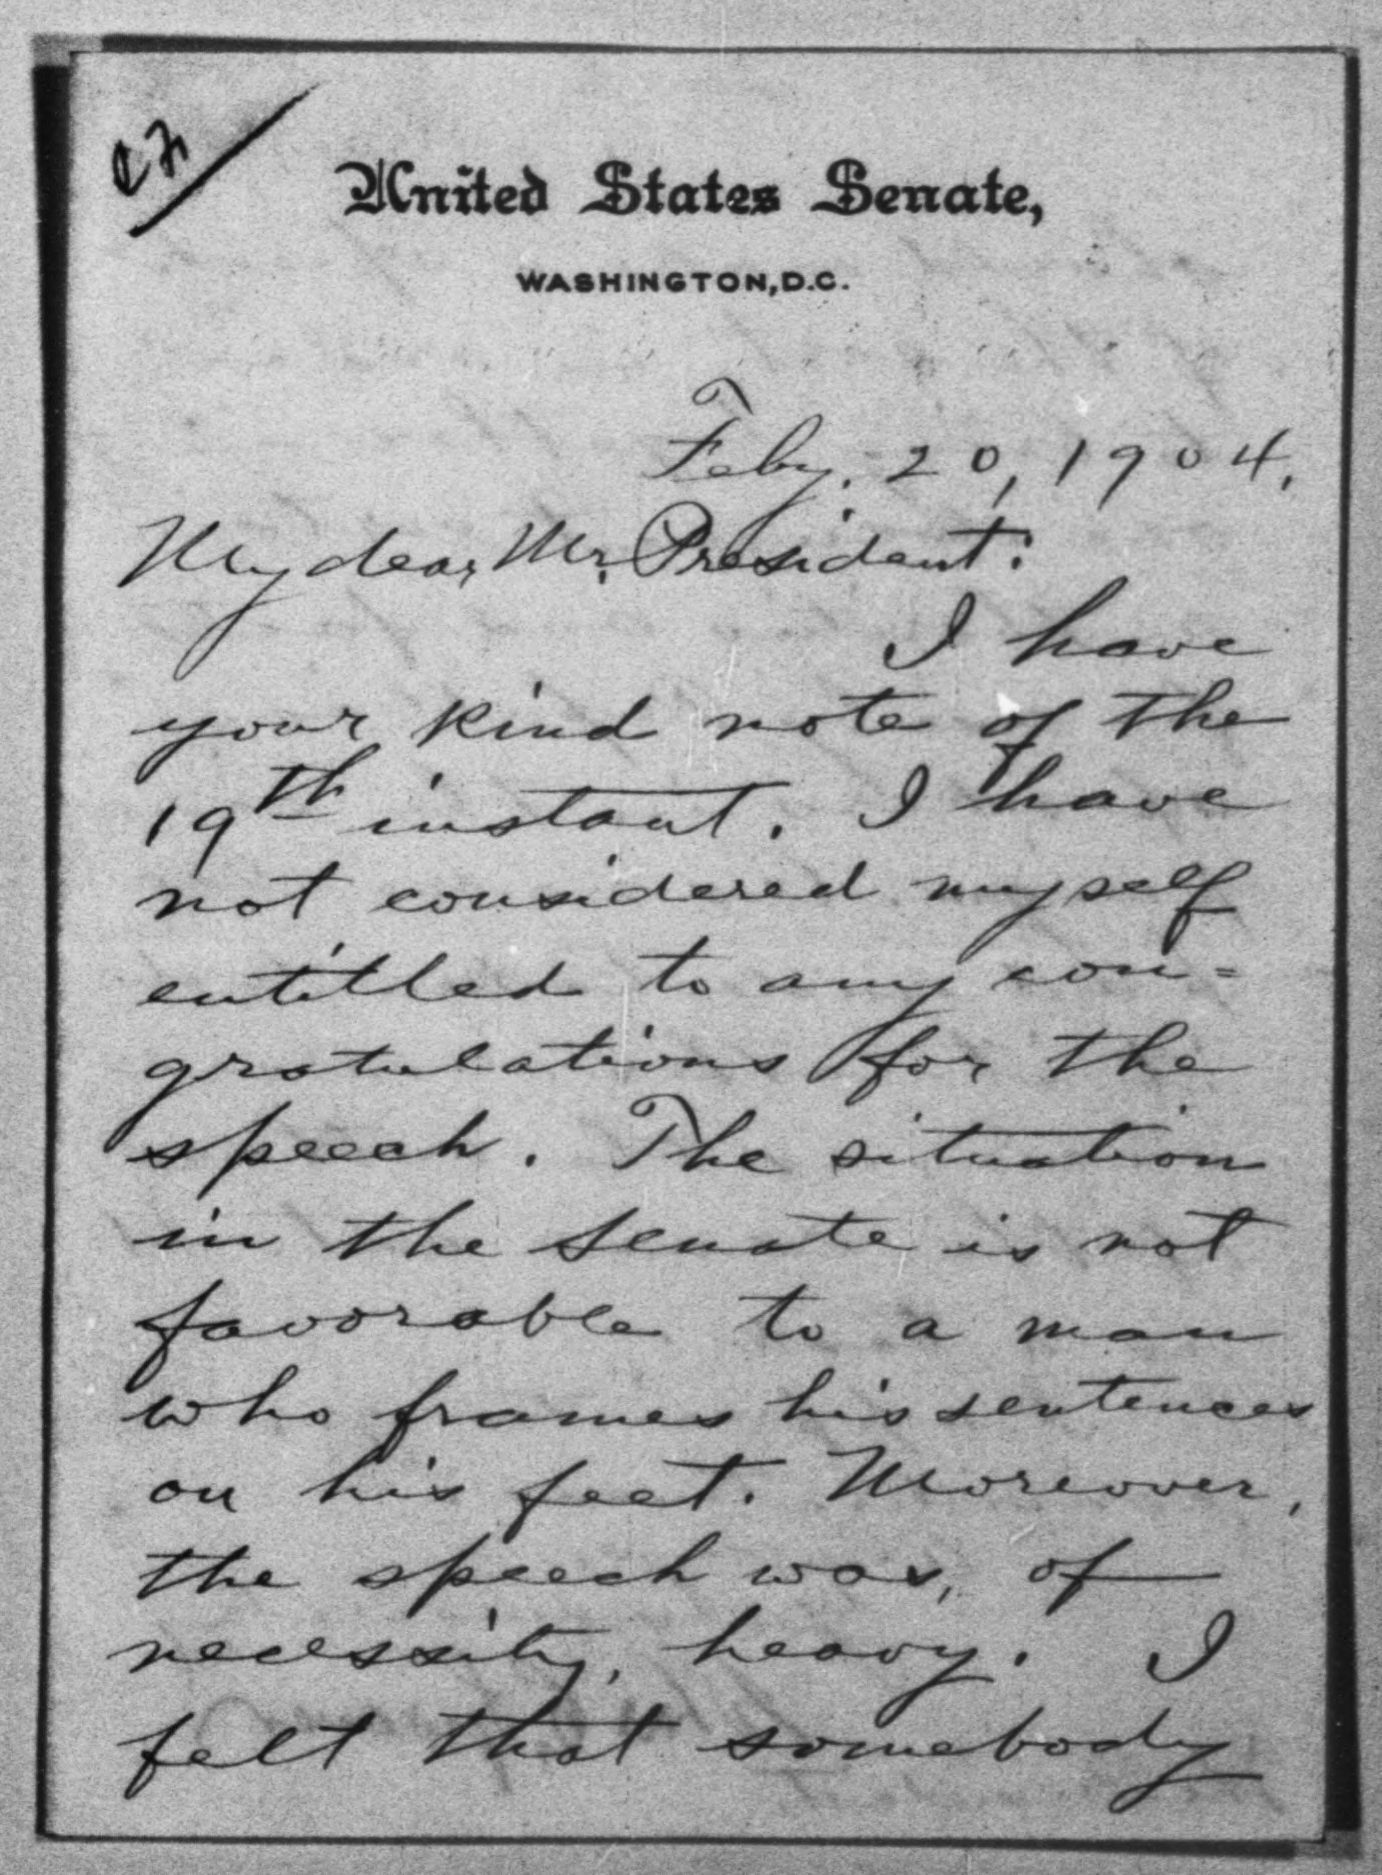 United States Senate,
WASHINGTON, D.C.
Feby. 20, 1904.
My dear Mr. President:
I have
your kind note of the
19th instant. I have
not considered myself
entitled to any con=
gratulations for the
speech. The situation
in the Senate is not
favorable to a man
who frames his sentences
on his feet. Moreover,
the speech was, of
necessity, heavy. I
felt that somebody